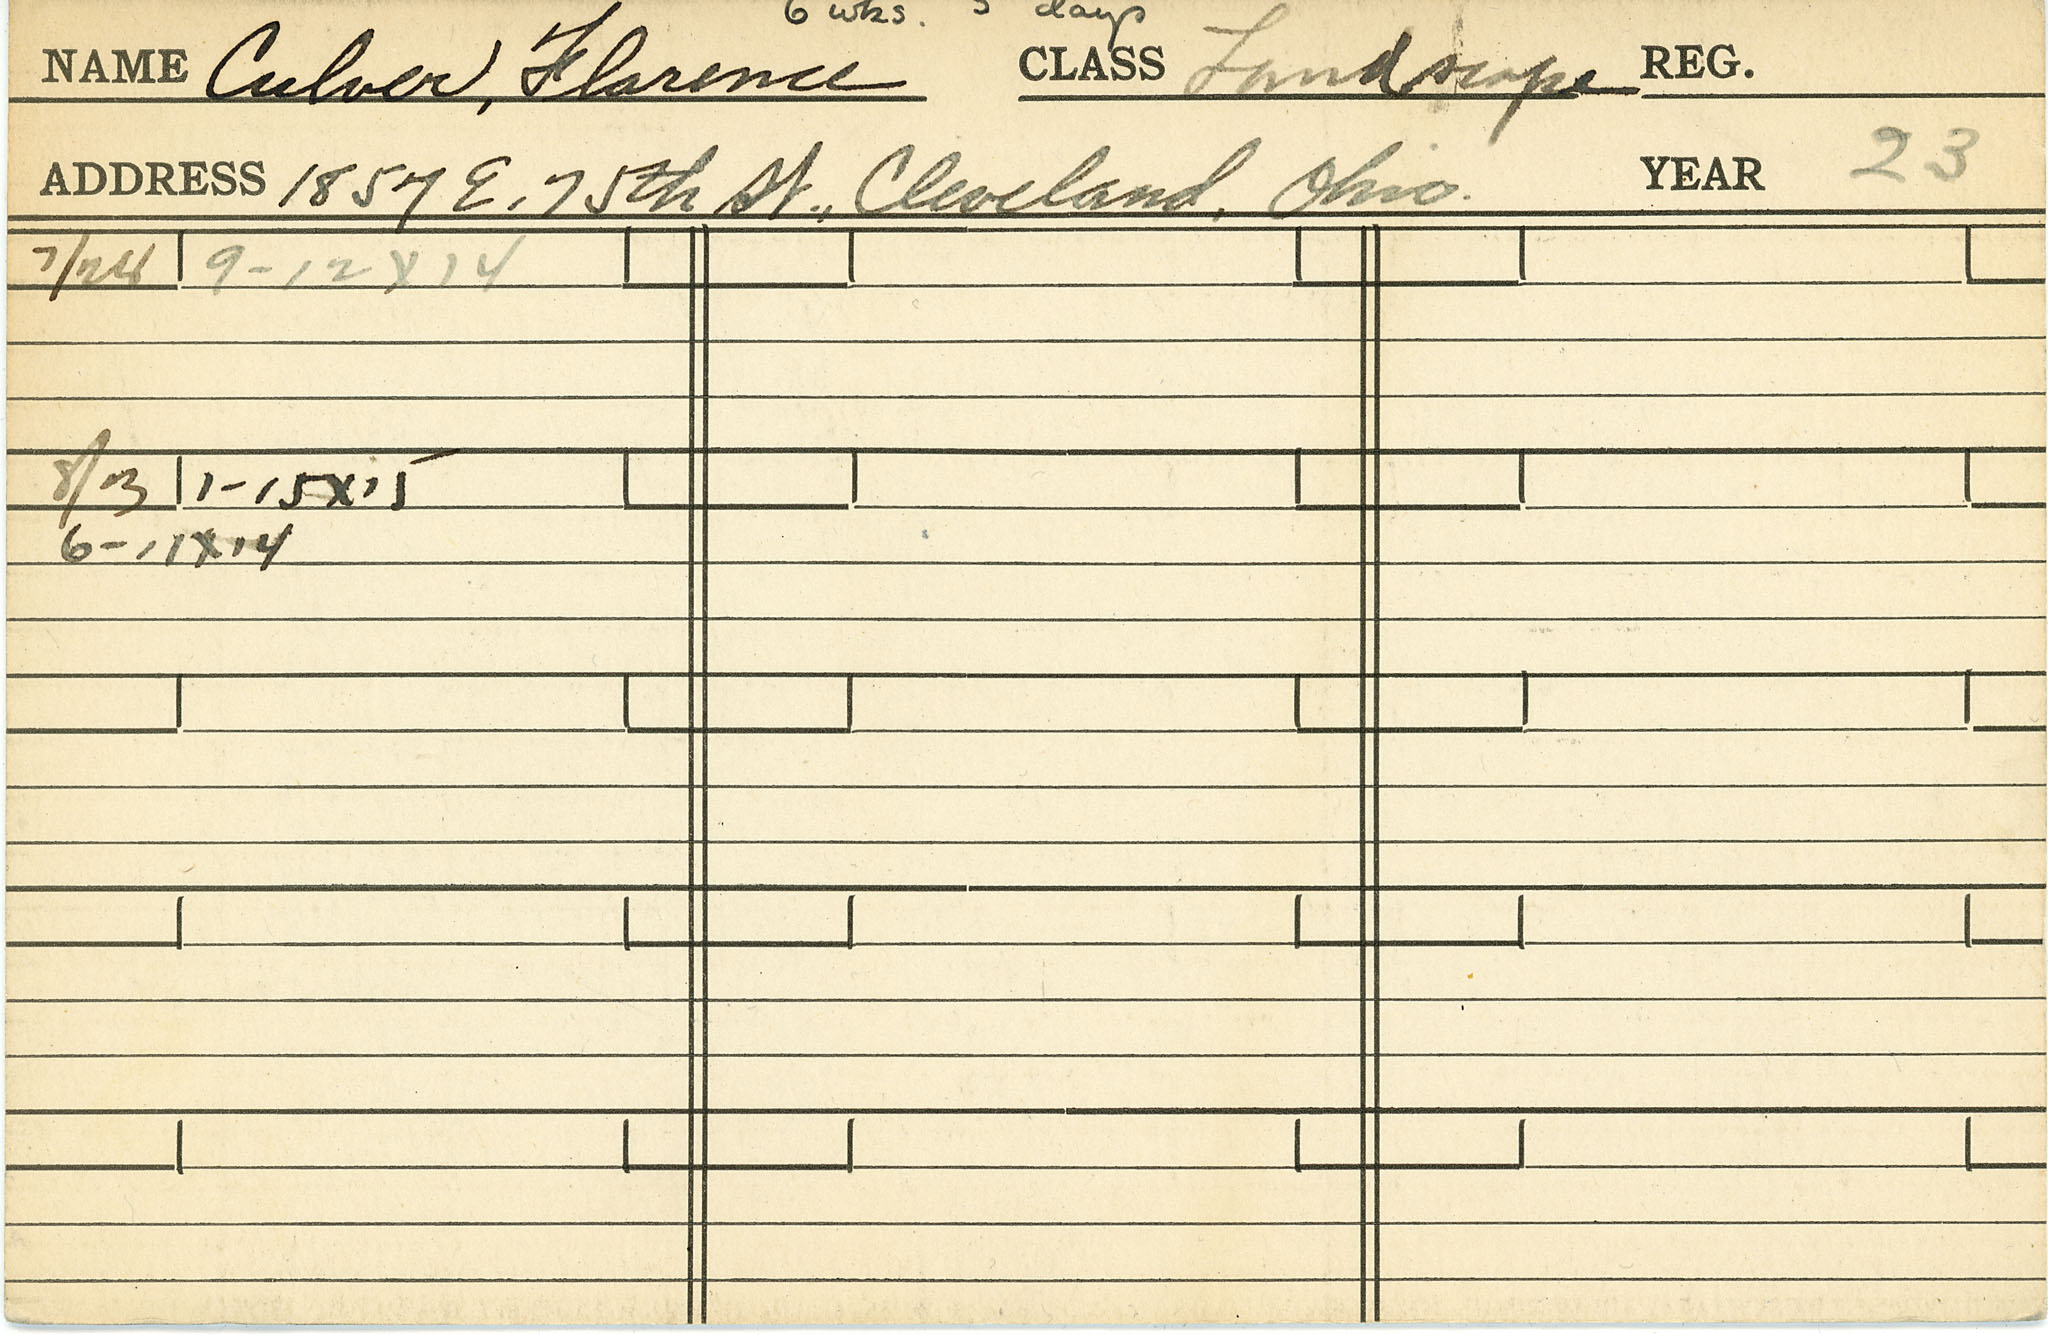 6 wks. 5 days
NAME Culver, Florence CLASS Landscape REG.
ADDRESS 1857 E. 75th St., Cleveland, Ohio. YEAR 23
7/24 9-12x14
8/3 1-15x15
6-11x14